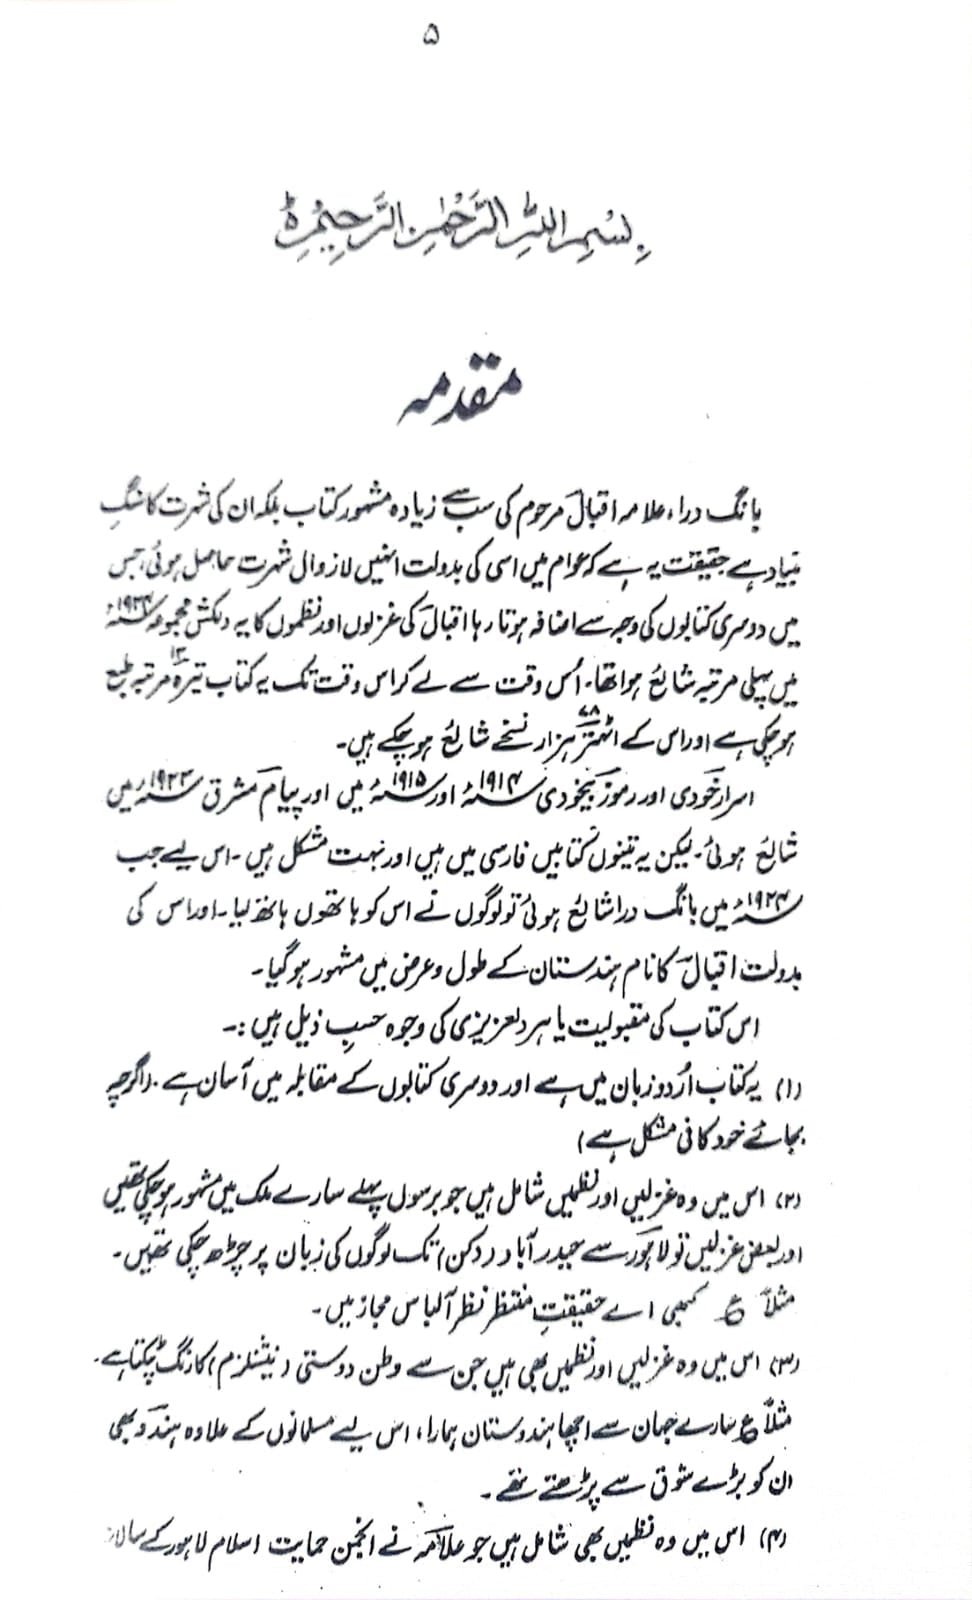 ۵
بِسْمِ اللهِ الرَّحْمٰنِ الرَّحِيْمِ ۝
مقدمہ
بانگ درا، علامہ اقبالؔ مرحوم کی سب سے زیادہ مشہور کتاب بلکہ ان کی شہرت کا سنگِ
بنیاد ہے حقیقت یہ ہے کہ عوام میں اسی کی بدولت انہیں لازوال شہرت حاصل ہوئی، جس
میں دوسری کتابوں کی وجہ سے اضافہ ہوتا رہا اقبالؔ کی غزلوں اور نظموں کا یہ دلکش مجموعہ ۱۹۲۴ء
میں پہلی مرتبہ شائع ہوا تھا۔ اُس وقت سے لے کر اس وقت تک یہ کتاب تیرہ ۱۳ مرتبہ طبع
ہو چکی ہے اور اس کے اٹہتر ۷۸ ہزار نسخے شائع ہو چکے ہیں۔
اسرار خودی اور رموز بیخودی ۱۹۱۴ء اور ۱۹۱۵ء میں اور پیام مشرق ۱۹۲۳ء میں
شائع ہوئی۔ لیکن یہ تینوں کتابیں فارسی میں ہیں اور بہت مشکل ہیں۔ اس لیے جب
۱۹۲۴ء میں بانگ درا شائع ہوئی تو لوگوں نے اس کو ہاتھوں ہاتھ لیا۔ اور اس کی
بدولت اقبالؔ کا نام ہندستان کے طول و عرض میں مشہور ہو گیا۔
اس کتاب کی مقبولیت یا ہر دلعزیزی کی وجوہ حسبِ ذیل ہیں :۔
(۱) یہ کتاب اُردو زبان میں ہے اور دوسری کتابوں کے مقابلہ میں آسان ہے۔ (اگرچہ
بجائے خود کافی مشکل ہے)
(۲) اس میں وہ غزلیں اور نظمیں شامل ہیں جو برسوں پہلے سارے ملک میں مشہور ہو چکی تھیں
اور بعض غزلیں تو لاہور سے حیدر آباد (دکن) تک لوگوں کی زبان پر چڑھ چکی تھیں۔
مثلاً ع کبھی اے حقیقتِ منتظر نظر آ لباس مجاز میں۔
(۳) اس میں وہ غزلیں اور نظمیں بھی ہیں جن سے وطن دوستی (نیشنلزم) کا رنگ ٹپکتا ہے۔
مثلاً ع سارے جہان سے اچھا ہندوستان ہمارا، اس لیے مسلمانوں کے علاوہ ہندو بھی
ان کو بڑے شوق سے پڑھتے تھے۔
(۴) اس میں وہ نظمیں بھی شامل ہیں جو علامہ نے انجمن حمایت اسلام لاہور کے سالانہ